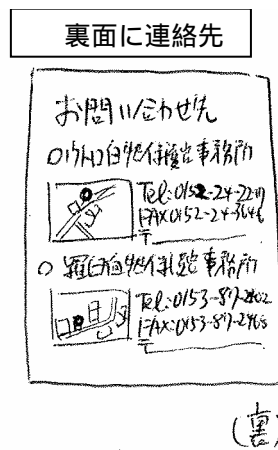 裏面に連絡先
お問い合わせ先
○ウトロ自然保護官事務所
Tel:0152-24-22
FAX0152-24-3646
〒
○羅臼自然保護官事務所
Tel:0153-87-2402
FAX:0153-87-2468
〒
(裏)